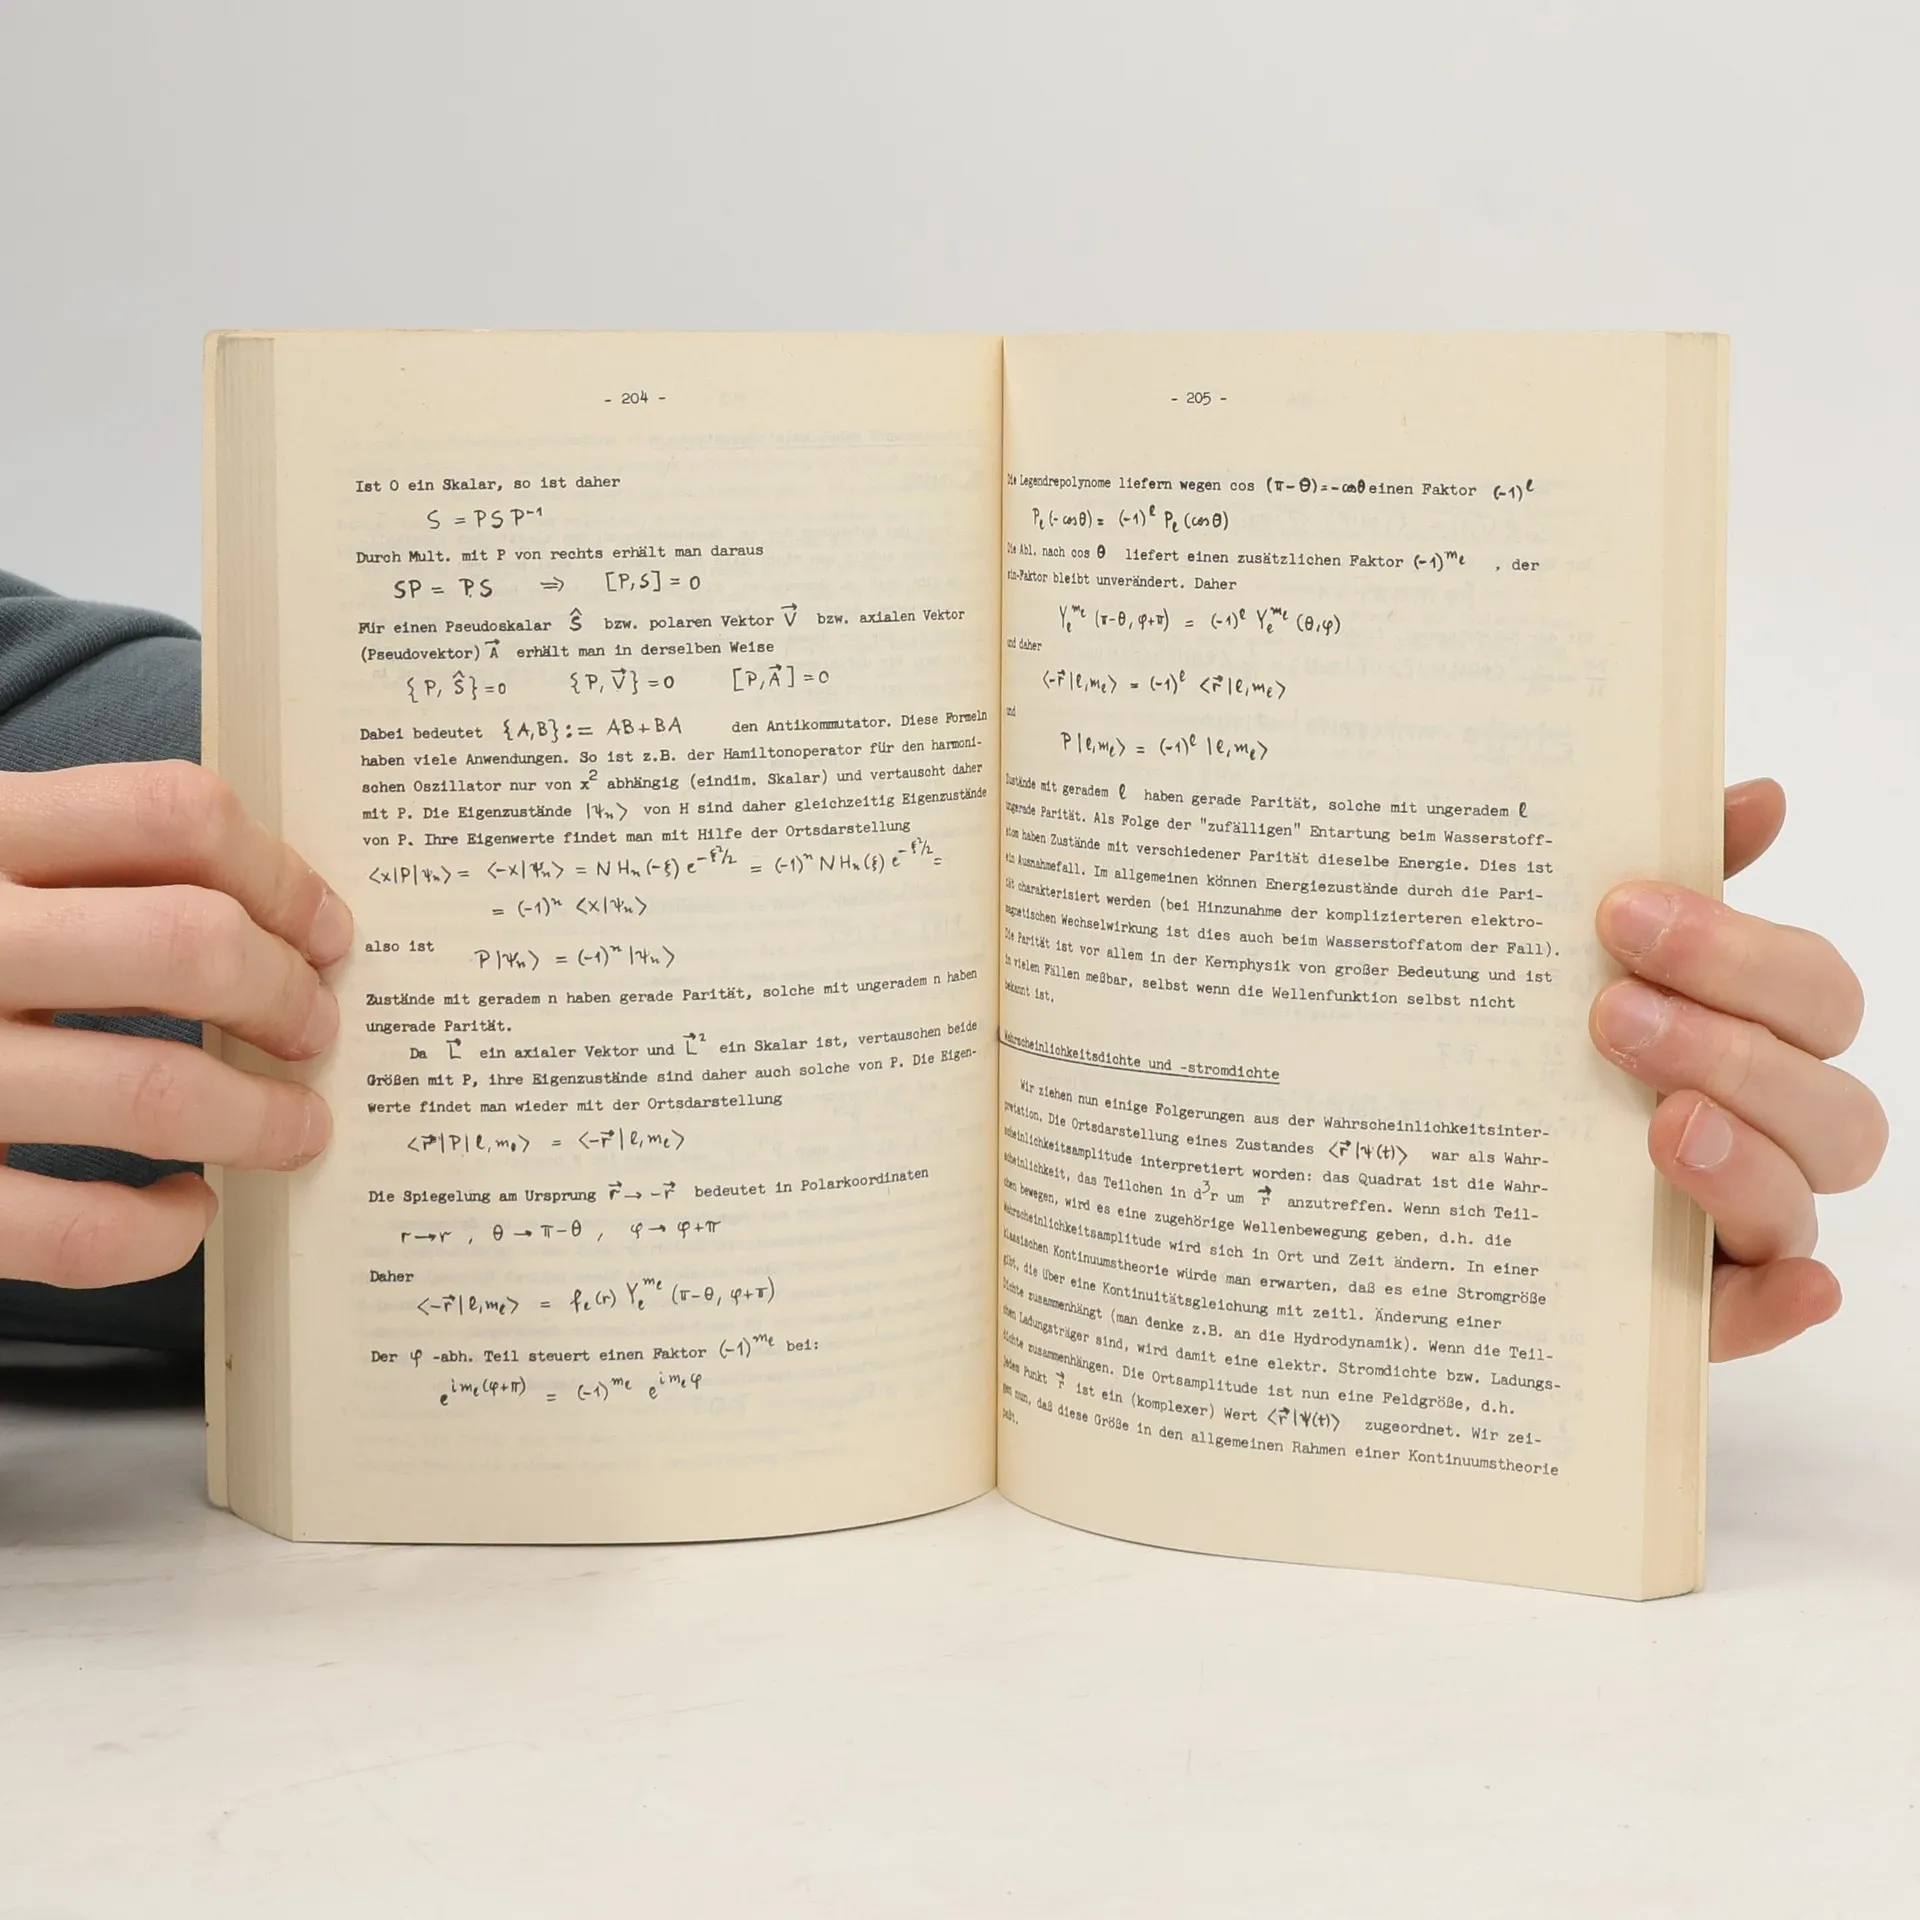 - 204 -
Ist O ein Skalar, so ist daher
S = PSP⁻¹
Durch Mult. mit P von rechts erhält man daraus
SP = PS ⇒ [P,S] = 0
Für einen Pseudoskalar Ŝ bzw. polaren Vektor V⃗ bzw. axialen Vektor
(Pseudovektor) A⃗ erhält man in derselben Weise
{P, Ŝ} = 0 {P, V⃗} = 0 [P, A⃗] = 0
Dabei bedeutet {A,B} := AB+BA den Antikommutator. Diese Formeln
haben viele Anwendungen. So ist z.B. der Hamiltonoperator für den harmoni-
schen Oszillator nur von x² abhängig (eindim. Skalar) und vertauscht daher
mit P. Die Eigenzustände |ψₙ⟩ von H sind daher gleichzeitig Eigenzustände
von P. Ihre Eigenwerte findet man mit Hilfe der Ortsdarstellung
⟨x|P|ψₙ⟩ = ⟨-x|ψₙ⟩ = N Hₙ(-ξ) e^{-ξ²/2} = (-1)ⁿ N Hₙ(ξ) e^{-ξ²/2} =
= (-1)ⁿ ⟨x|ψₙ⟩
also ist P|ψₙ⟩ = (-1)ⁿ |ψₙ⟩
Zustände mit geradem n haben gerade Parität, solche mit ungeradem n haben
ungerade Parität.
Da L⃗ ein axialer Vektor und L⃗² ein Skalar ist, vertauschen beide
Größen mit P, ihre Eigenzustände sind daher auch solche von P. Die Eigen-
werte findet man wieder mit der Ortsdarstellung
⟨r⃗|P|ℓ,mₑ⟩ = ⟨-r⃗|ℓ,mₑ⟩
Die Spiegelung am Ursprung r⃗ → -r⃗ bedeutet in Polarkoordinaten
r → r , θ → π-θ , φ → φ+π
Daher
⟨-r⃗|ℓ,mₑ⟩ = fₑ(r) Yₑ^{mₑ} (π-θ, φ+π)
Der φ -abh. Teil steuert einen Faktor (-1)^{mₑ} bei:
e^{imₑ(φ+π)} = (-1)^{mₑ} e^{imₑφ}
- 205 -
Die Legendrepolynome liefern wegen cos (π-θ) = -cosθ einen Faktor (-1)^ℓ
Pₑ(-cosθ) = (-1)^ℓ Pₑ(cosθ)
Die Abl. nach cos θ liefert einen zusätzlichen Faktor (-1)^{mₑ} , der
sin-Faktor bleibt unverändert. Daher
Yₑ^{mₑ} (π-θ, φ+π) = (-1)^ℓ Yₑ^{mₑ} (θ,φ)
und daher
⟨-r⃗|ℓ,mₑ⟩ = (-1)^ℓ ⟨r⃗|ℓ,mₑ⟩
und
P|ℓ,mₑ⟩ = (-1)^ℓ |ℓ,mₑ⟩
Zustände mit geradem ℓ haben gerade Parität, solche mit ungeradem ℓ
ungerade Parität. Als Folge der "zufälligen" Entartung beim Wasserstoff-
atom haben Zustände mit verschiedener Parität dieselbe Energie. Dies ist
ein Ausnahmefall. Im allgemeinen können Energiezustände durch die Pari-
tät charakterisiert werden (bei Hinzunahme der komplizierteren elektro-
magnetischen Wechselwirkung ist dies auch beim Wasserstoffatom der Fall).
Die Parität ist vor allem in der Kernphysik von großer Bedeutung und ist
in vielen Fällen meßbar, selbst wenn die Wellenfunktion selbst nicht
bekannt ist.
Wahrscheinlichkeitsdichte und -stromdichte
Wir ziehen nun einige Folgerungen aus der Wahrscheinlichkeitsinter-
pretation. Die Ortsdarstellung eines Zustandes ⟨r⃗|ψ(t)⟩ war als Wahr-
scheinlichkeitsamplitude interpretiert worden: das Quadrat ist die Wahr-
scheinlichkeit, das Teilchen in d³r um r⃗ anzutreffen. Wenn sich Teil-
chen bewegen, wird es eine zugehörige Wellenbewegung geben, d.h. die
Wahrscheinlichkeitsamplitude wird sich in Ort und Zeit ändern. In einer
klassischen Kontinuumstheorie würde man erwarten, daß es eine Stromgröße
gibt, die über eine Kontinuitätsgleichung mit zeitl. Änderung einer
Dichte zusammenhängt (man denke z.B. an die Hydrodynamik). Wenn die Teil-
chen Ladungsträger sind, wird damit eine elektr. Stromdichte bzw. Ladungs-
dichte zusammenhängen. Die Ortsamplitude ist nun eine Feldgröße, d.h.
jedem Punkt r⃗ ist ein (komplexer) Wert ⟨r⃗|ψ(t)⟩ zugeordnet. Wir zei-
gen nun, daß diese Größe in den allgemeinen Rahmen einer Kontinuumstheorie
paßt.